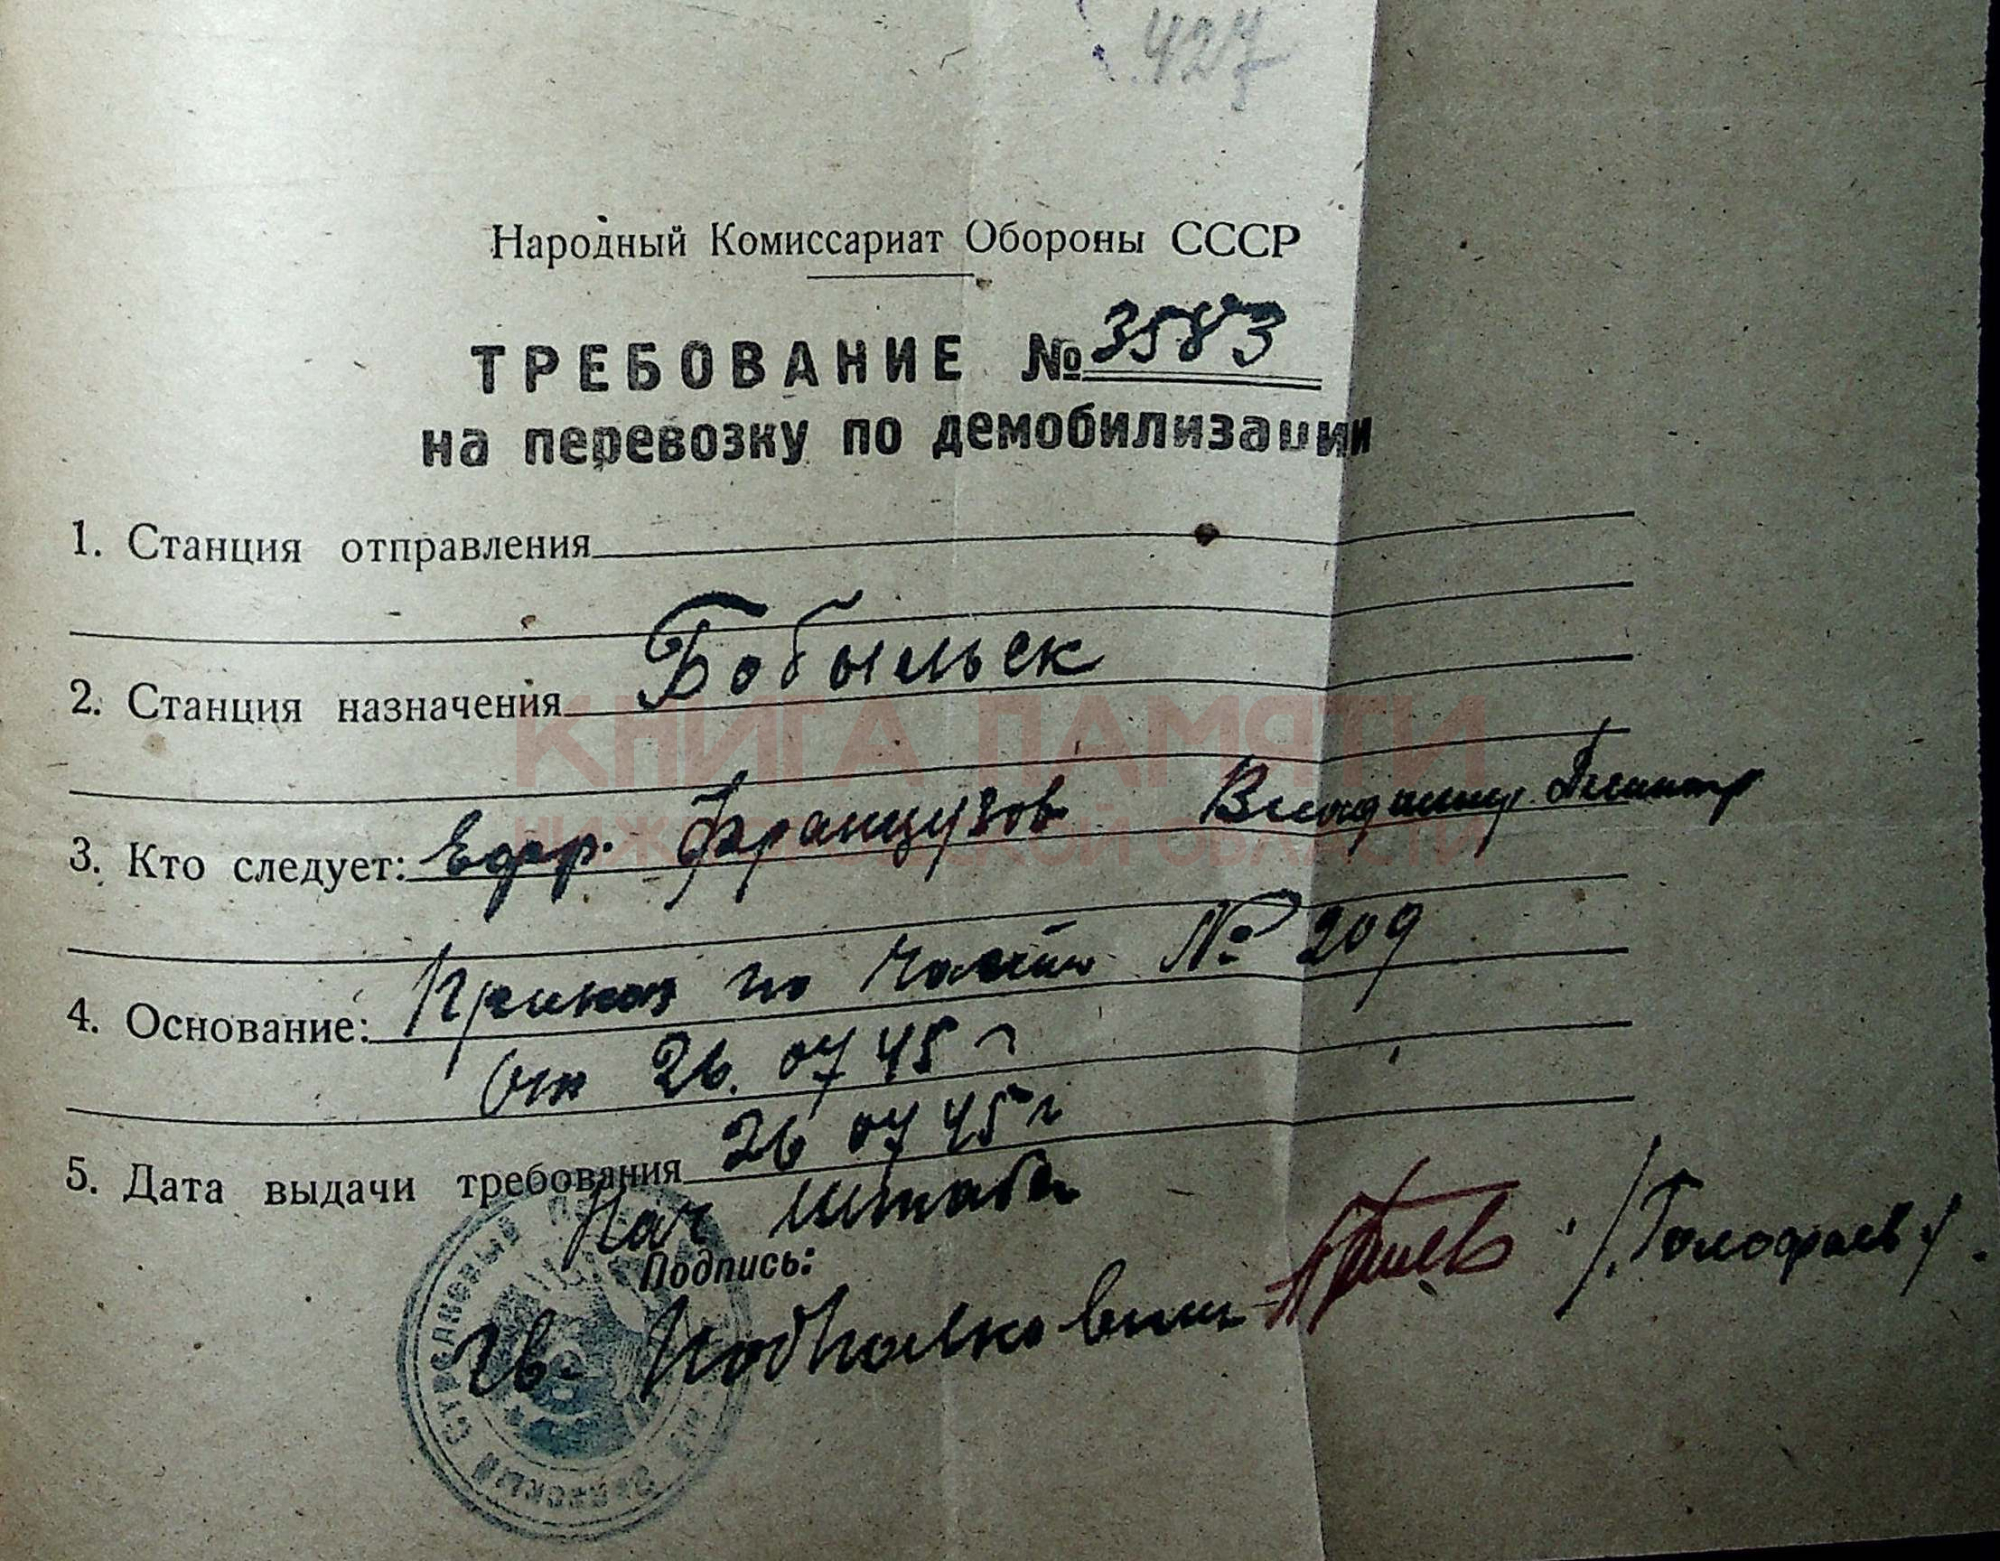 427
Народный Комиссариат Обороны СССР
ТРЕБОВАНИЕ № 3583
на перевозку по демобилизации
1. Станция отправления
2. Станция назначения Бобыльск
КНИГА ПАМЯТИ
3. Кто следует: Ефр. Французов Владимир
НИЖЕГОРОДСКОЙ ОБЛАСТИ
4. Основание: Приказ по части № 209
от 26.07 45 г
5. Дата выдачи требования 26 07 45 г
Нач штаба
Подпись:
Гв. Подполковник /Голофаев/.
СТРЕЛКОВЫЙ